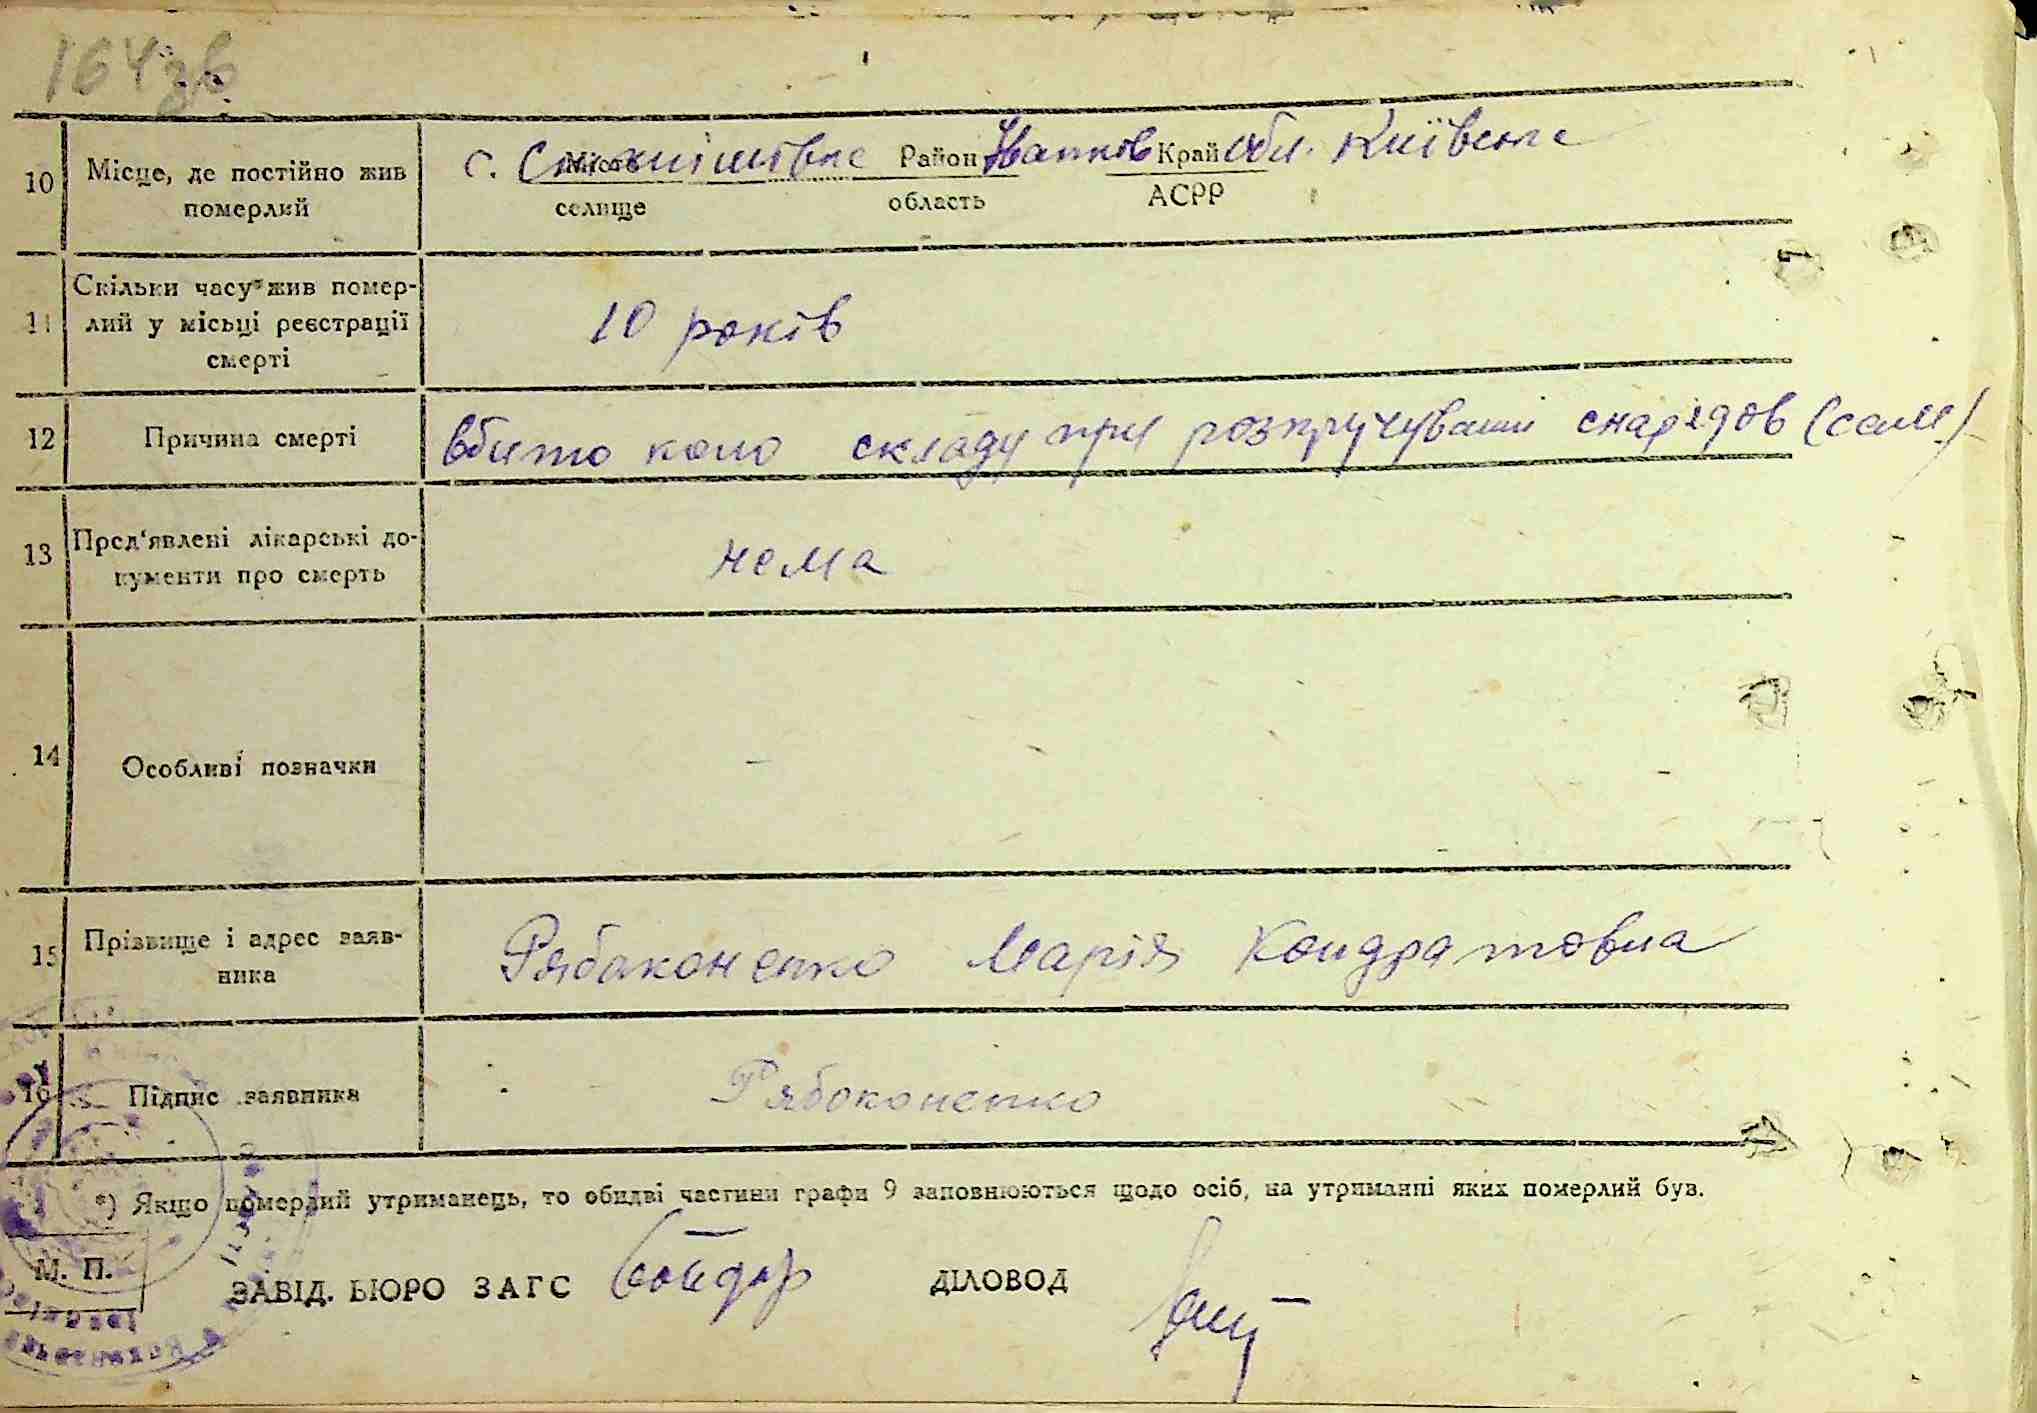 164зв
10 Місце, де постійно жив
померлий
с. Місто Район Іванків Край обл. Київська
селище область АСРР
11 Скільки часу жив помер-
лий у місьці реєстрації
смерті
10 років
12 Причина смерті
вбито коло складу при розпручуванні снарядов (сам)
13 Пред‘явлені лікарські до-
кументи про смерть
нема
14 Особливі позначки
15 Прізвище і адрес заяв-
ника
Рябоконенко Марія Кондратовна
16 Підпис заявника
Рябоконенко
*) Якщо померлий утриманець, то обидві частини графи 9 заповнюються щодо осіб, на утриманні яких померлий був.
М. П.
ЗАВІД. БЮРО ЗАГС ДІЛОВОД